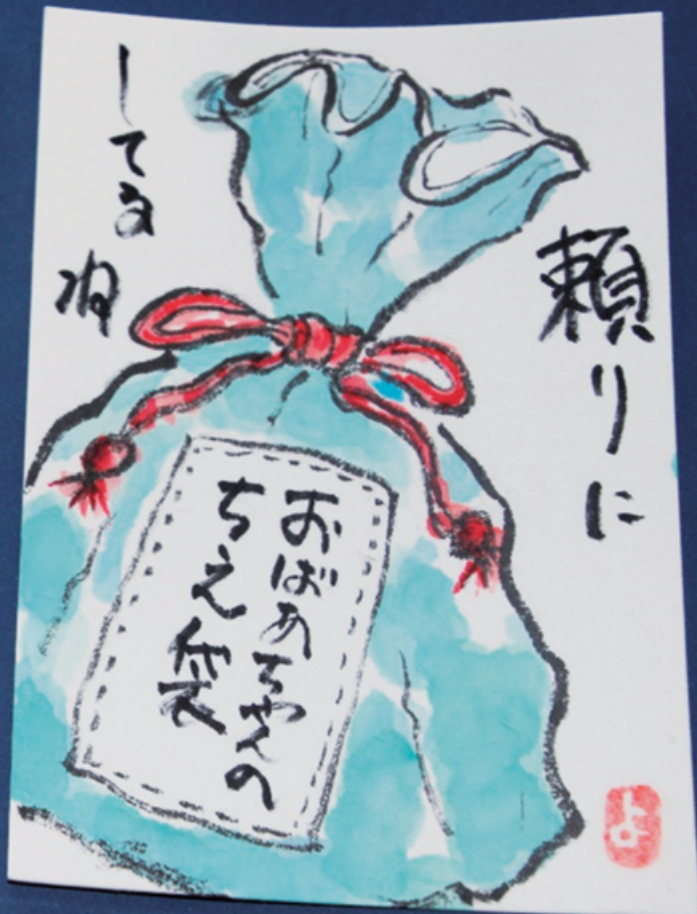 頼りに
してるね
おばあちゃんの
ちえ袋
よ